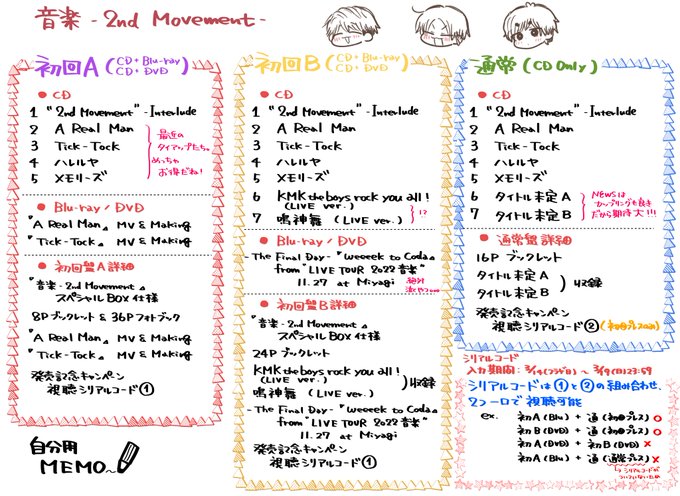 音楽 - 2nd Movement -
初回A (CD+Blu-ray
CD+DVD)
● CD
1 "2nd Movement" - Interlude
2 A Real Man
3 Tick-Tock
4 ハレルヤ
5 メモリーズ
最近の
タイアップたち。
めっちゃ
お得だね!
● Blu-ray / DVD
『A Real Man』 MV & Making
『Tick-Tock』 MV & Making
● 初回盤A詳細
『音楽 - 2nd Movement』
スペシャルBOX仕様
8Pブックレット & 36Pフォトブック
『A Real Man』 MV & Making
『Tick-Tock』 MV & Making
発売記念キャンペーン
視聴シリアルコード①
自分用
MEMO~
初回B (CD+Blu-ray
CD+DVD)
● CD
1 "2nd Movement" - Interlude
2 A Real Man
3 Tick-Tock
4 ハレルヤ
5 メモリーズ
6 KMK the boys rock you all!
(LIVE ver.)
7 鳴神舞 (LIVE ver.)
!?
● Blu-ray / DVD
- The Final Day - 『weeeek to Coda』
from "LIVE TOUR 2022 音楽"
11.27 at Miyagi
絶対
● 初回盤B詳細
『音楽 - 2nd Movement』
スペシャルBOX仕様
24Pブックレット
KMK the boys rock you all!
(LIVE ver.)
鳴神舞 (LIVE ver.)
収録
- The Final Day - 『weeeek to Coda』
from "LIVE TOUR 2022 音楽"
11.27 at Miyagi
発売記念キャンペーン
視聴シリアルコード①
通常 (CD Only)
● CD
1 "2nd Movement" - Interlude
2 A Real Man
3 Tick-Tock
4 ハレルヤ
5 メモリーズ
6 タイトル未定A
7 タイトル未定B
NEWSは
カップリングも良き
だから期待大!!!
● 通常盤詳細
16Pブックレット
タイトル未定A
タイトル未定B
収録
発売記念キャンペーン
視聴シリアルコード② (初回プレスのみ)
シリアルコード
入力期間: 3/4(フラゲ日) ~ 3/9(日)23:59
シリアルコードは①と②の組み合わせ、
2つ一口で視聴可能
ex. 初A(Blu) + 通(初回プレス) ○
初B(DVD) + 通(初回プレス) ○
初A(DVD) + 初B(DVD) ×
初A(Blu) + 通(通常プレス) ×
シリアルコードが
ついていないため